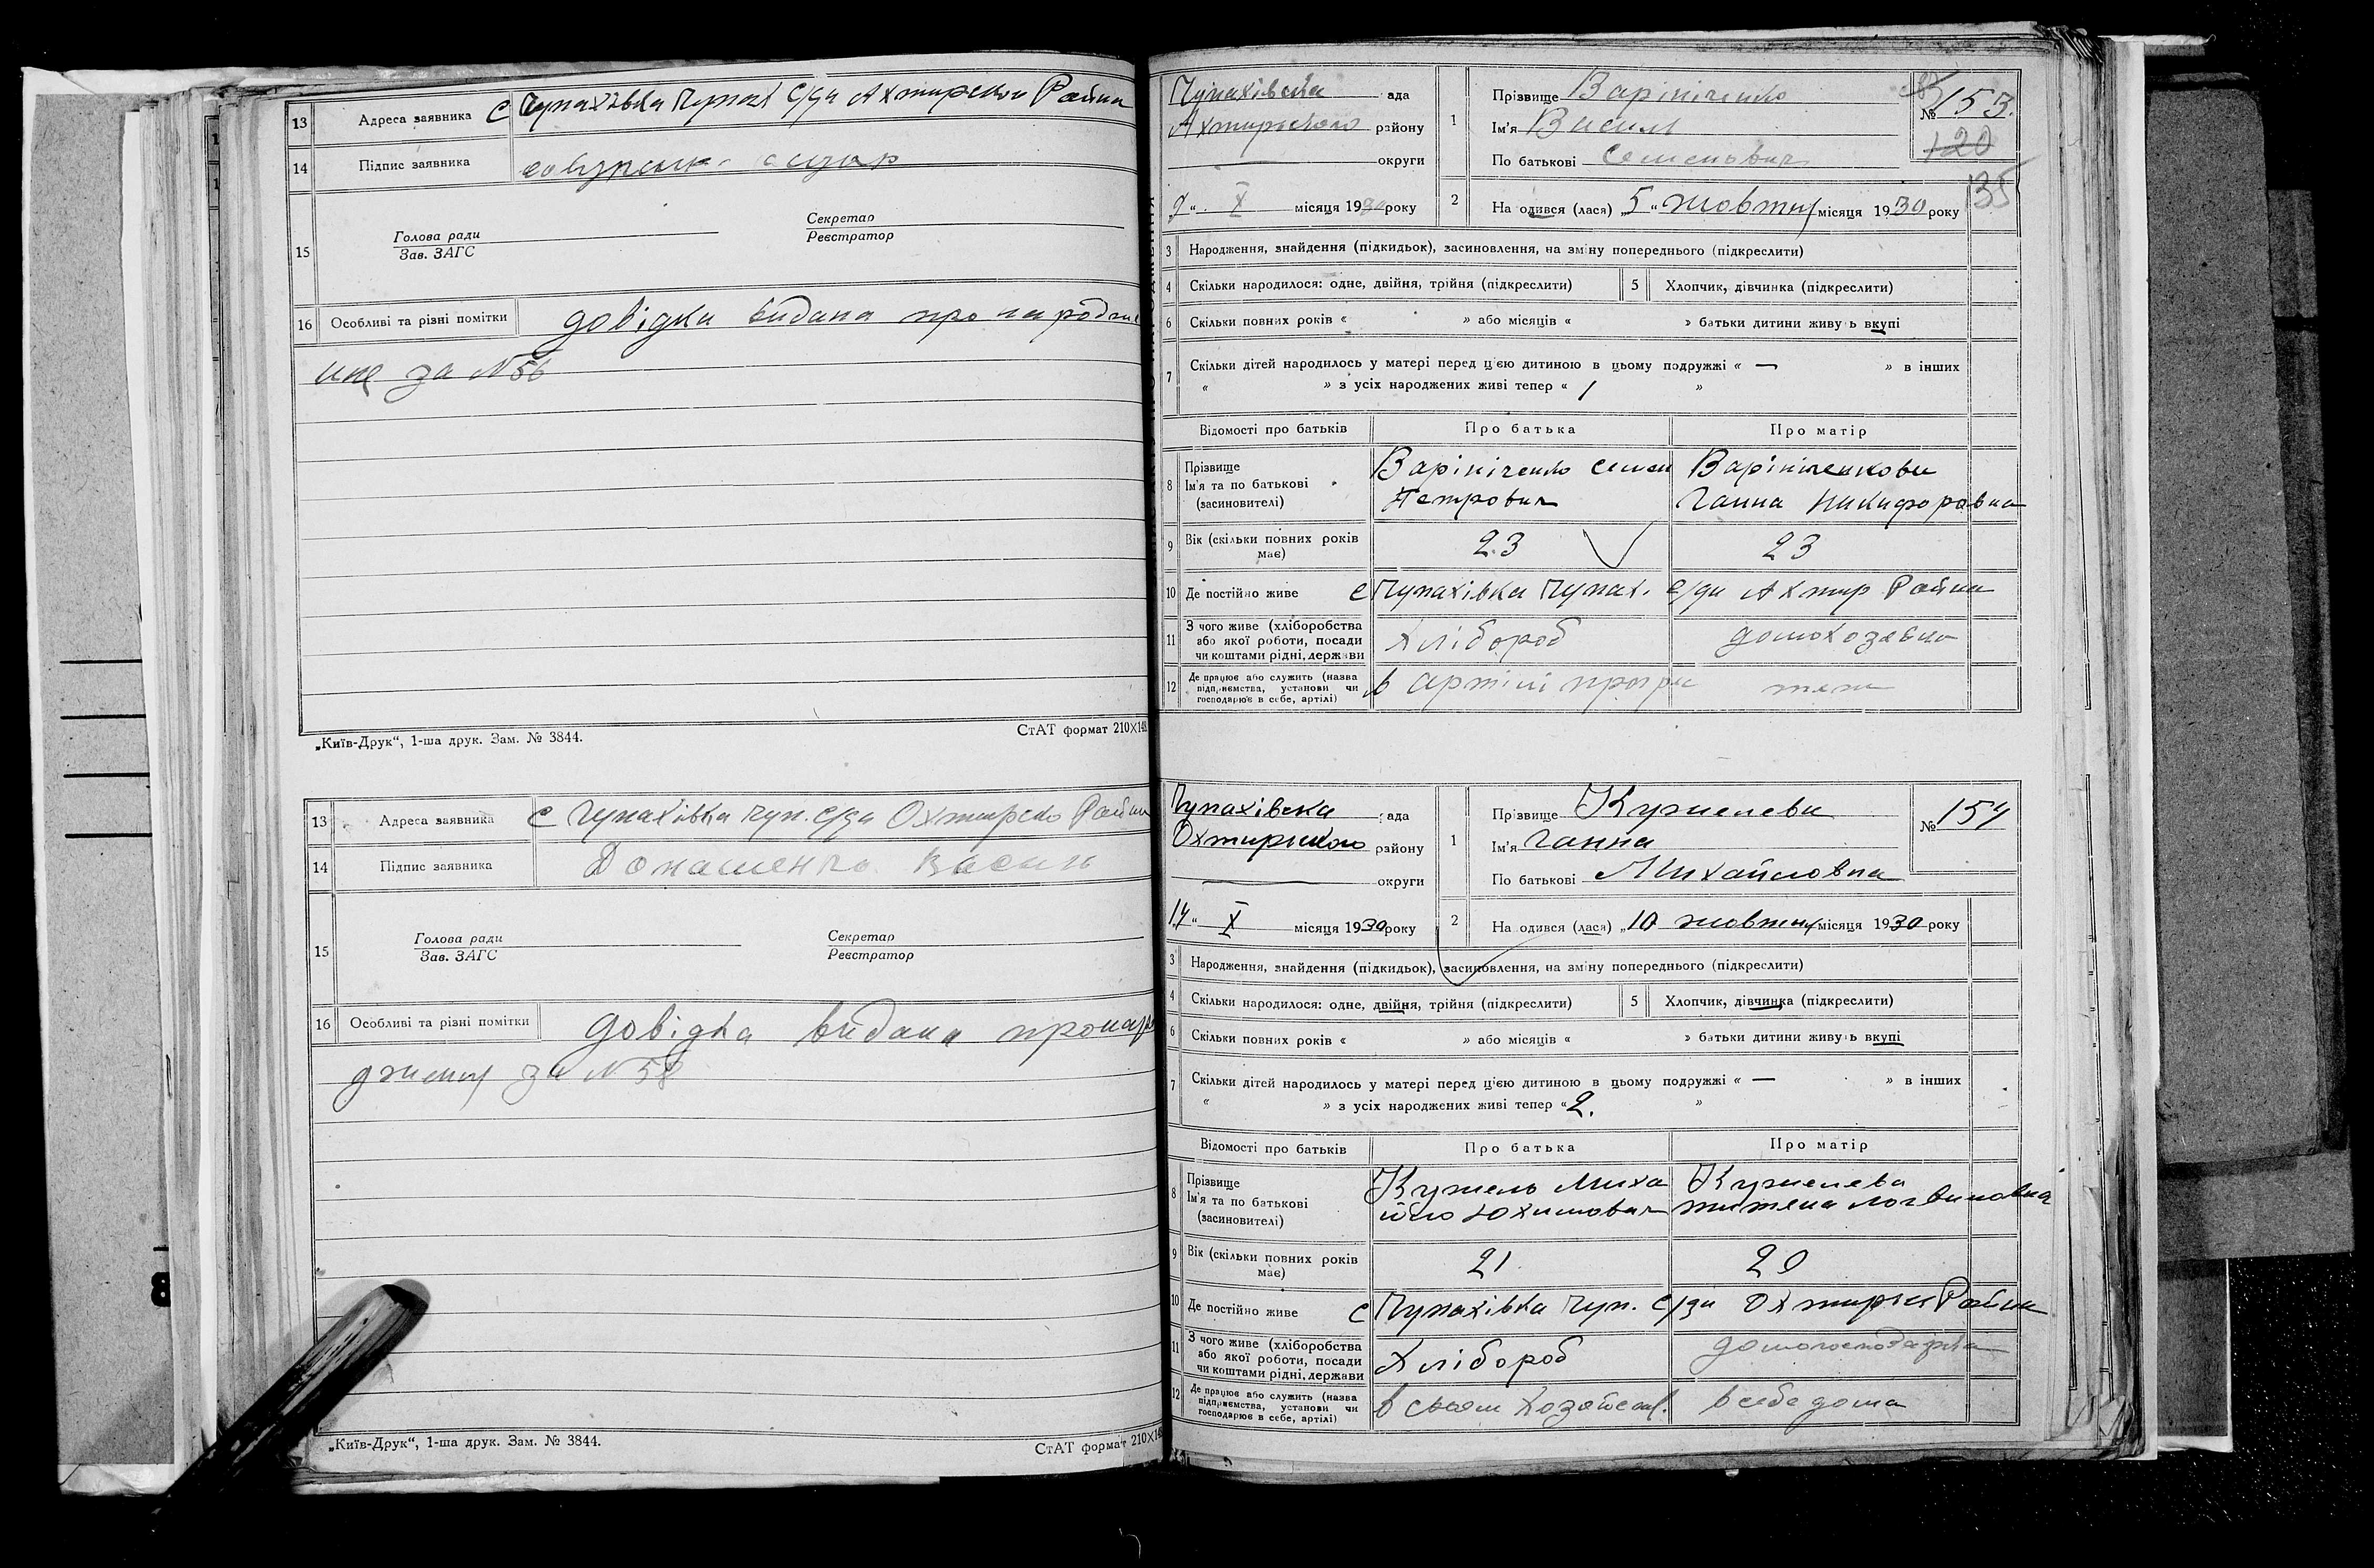 13 Адреса заявника С Чупахівка Чупах С/ди Ахтирскои Райна
14 Підпис заявника
15 Голова ради Секретар
Зав. ЗАГС Реєстратор
16 Особливі та різні помітки довідка видана про народже
ние за N 56
„Київ-Друк“, 1-ша друк. Зам. № 3844. СтАТ формат 210Х148
13 Адреса заявника С Чупахівка Чуп. с/ди Охтирско Района
14 Підпис заявника Домашенко Василь
15 Голова ради Секретар
Зав. ЗАГС Реєстратор
16 Особливі та різні помітки довідка видана про наро
дження за N 58
„Київ-Друк“, 1-ша друк. Зам. № 3844. СтАТ формат 210Х148
Чупахівська рада
Ахтирського району
округи
9 „ X місяця 1930 року
1 Прізвище Варініченко
Ім'я Василь
По батькові Семенович
№ 153.
120
135
2 Народився (лася) „5“ жовтня місяця 1930 року
3 Народження, знайдення (підкидьок), засиновлення, на зміну попереднього (підкреслити)
4 Скільки народилося: одне, двійня, трійня (підкреслити) 5 Хлопчик, дівчинка (підкреслити)
6 Скільки повних років « » або місяців « » батьки дитини живуть вкупі
7 Скільки дітей народилось у матері перед цією дитиною в цьому подружжі « — » в інших
« » з усіх народжених живі тепер « 1 »
Відомості про батьків Про батька Про матір
8 Прізвище Ім'я та по батькові (засновителі) Варініченко Семен Варініченкова
Петрович Ганна Никифоровна
9 Вік (скільки повних років має) 23 23
10 Де постійно живе С Чупахівка Чупах. С/ди Ахтир Района
11 З чого живе (хліборобства або якої роботи, посади чи коштами рідні, держави Хлібороб домохозяйка
12 Де працює або служить (назва підприємства, установи чи господарює в себе, артілі) в артілі
Чупахівска рада
Охтирського району
округи
14 „ X місяця 1930 року
1 Прізвище Кужелева
Ім'я Ганна
По батькові Михайловна
№ 154
2 Народився (лася) „10 жовтня місяця 1930 року
3 Народження, знайдення (підкидьок), засиновлення, на зміну попереднього (підкреслити)
4 Скільки народилося: одне, двійня, трійня (підкреслити) 5 Хлопчик, дівчинка (підкреслити)
6 Скільки повних років « » або місяців « » батьки дитини живуть вкупі
7 Скільки дітей народилось у матері перед цією дитиною в цьому подружжі « — » в інших
« » з усіх народжених живі тепер « 2. »
Відомості про батьків Про батька Про матір
8 Прізвище Ім'я та по батькові (засиновителі) Кужель Миха Кужелева
йло Юхимович Логвиновна
9 Вік (скільки повних років має) 21 20
10 Де постійно живе С Чупахівка Чуп. С/ди Охтирск Района
11 З чого живе (хліборобства або якої роботи, посади чи коштами рідні, держави Хлібороб домогосподарка
12 Де працює або служить (назва підприємства, установи чи господарює в себе, артілі) в своем хозяйстві. в себе дома